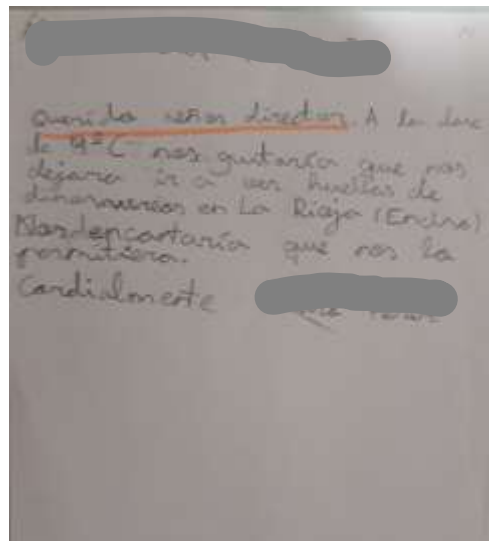 Querido señor director. A la clase
de 4º C nos gustaría que nos
dejara ir a ver huellas de
dinosaurios en La Rioja (Enciso)
Nos encantaría que nos lo
permitiera.
Cordialmente